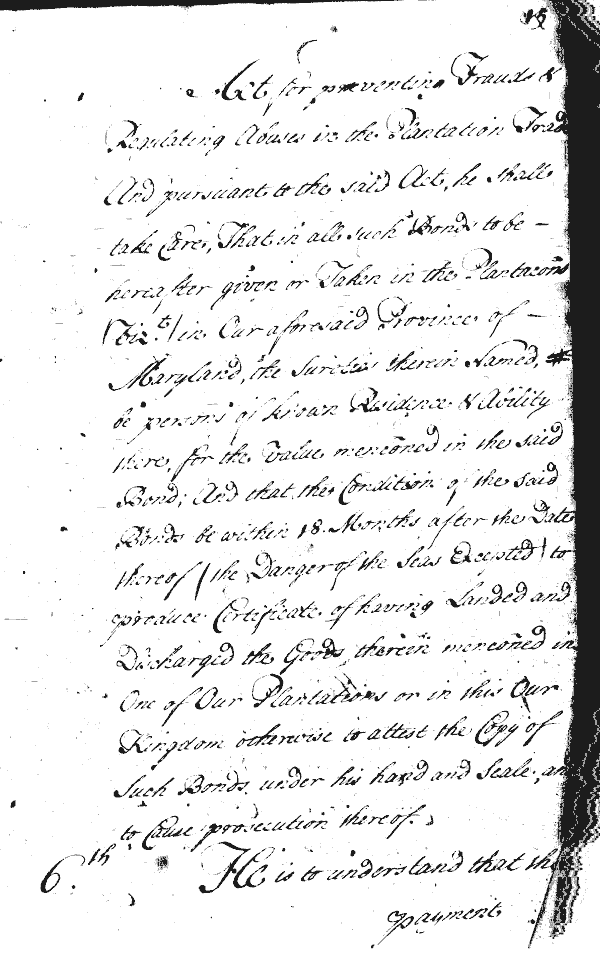 15
Act for preventing Frauds &
Regulating Abuses in the Plantation Trade
And pursuant to the said Act, he shall
take Care, That in all such Bonds to be –
hereafter given or Taken in the Plantacons
(vizt.) in Our aforesaid Province of –
Maryland, the Sureties therein Named,
be persons of known Residence & Ability
there, for the value mencõned in the said
Bond; And that the Condition of the said
Bonds be within 18 Months after the Date
thereof (the Danger of the Seas Excepted) to
produce Certificate of having Landed and
Discharged the Goods therein mencõned in
One of Our Plantations or in this Our
Kingdom otherwise to attest the Copy of
Such Bonds under his hand and Seale, an
to Cause prosecution thereof.
6.th He is to understand that the
payment